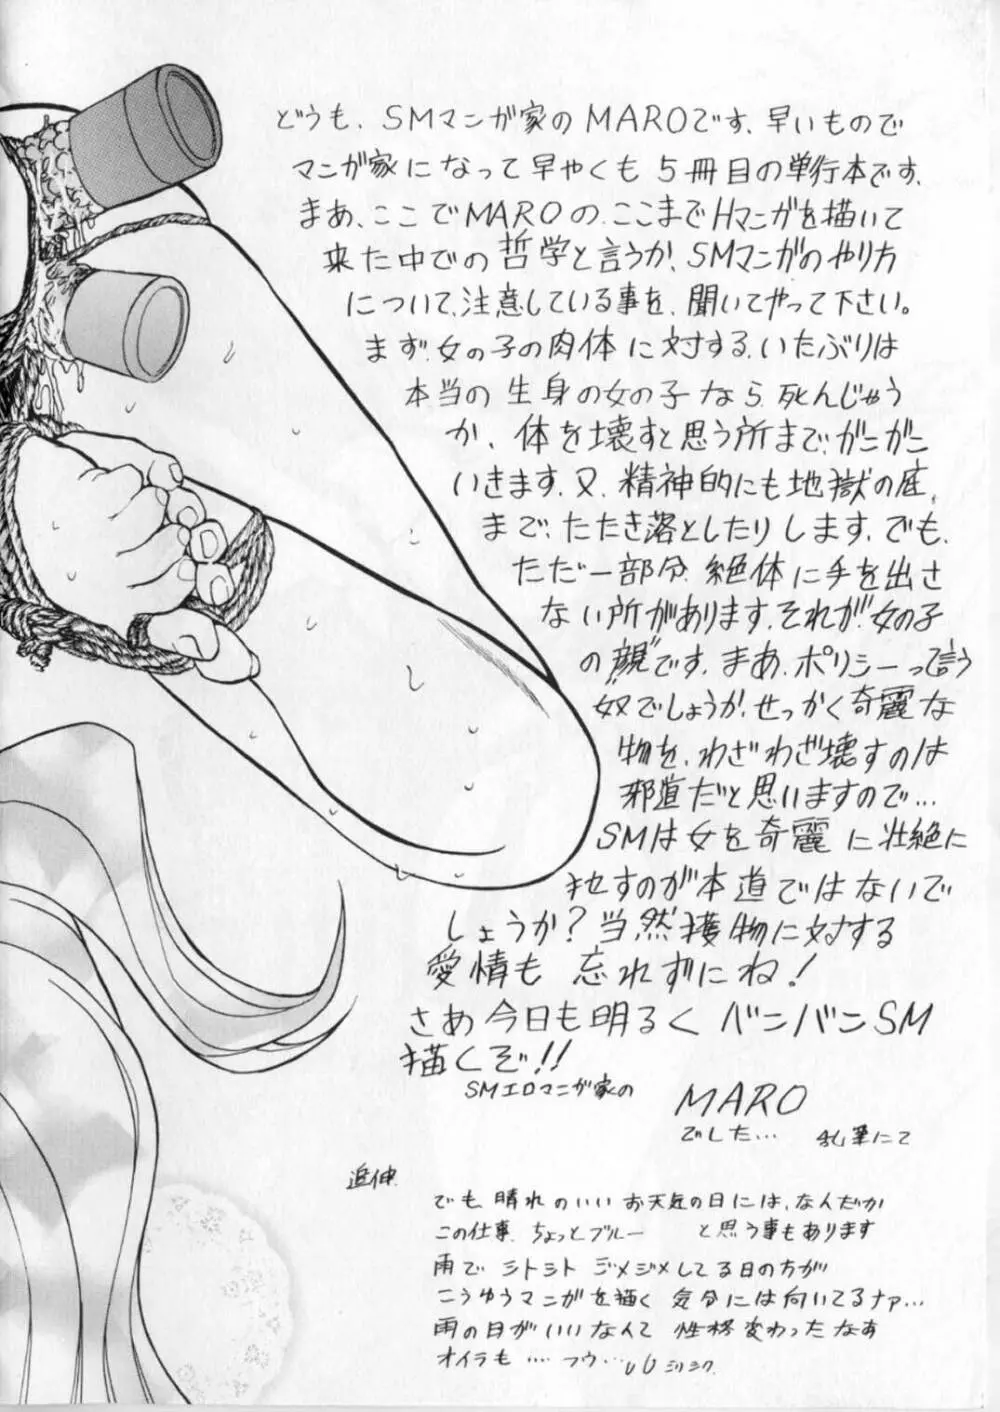 どうも、SMマンガ家のMAROです、早いもので
マンガ家になって早やくも5冊目の単行本です、
まあ、ここでMAROの、ここまでHマンガを描いて
来た中での哲学と言うか、SMマンガのやり方
について、注意している事を、聞いてやって下さい。
まず、女の子の肉体に対する、いたぶりは
本当の生身の女の子なら、死んじゃう
か、体を壊すと思う所まで、がンがン
いきます、又、精神的にも地獄の底、
まで、たたき落としたりします、でも、
ただ一部分、絶体に手を出さ
ない所があります、それが、女の子
の"顔"です、まあ、ポリシーって言う
奴でしょうか、せっかく奇麗な
物を、わざわざ壊すのは
邪道だと思いますので…
SMは女を奇麗に壮絶に
すのが本道ではないで
しょうか?当然獲物に対する
愛情も忘れずにね!
さあ今日も明るくバンバンSM
描くぞ!!
SMエロマンガ家の
MARO
でした… 乱筆にて
追伸
でも、晴れのいいお天気の日には、なんだか
この仕事、ちょっとブルー と思う事もあります
雨でシトシトジメジメしてる日の方が
こうゆうマンガを描く気分には向いてるナァ…
雨の日がいいなんて性格変わったなあ
オイラも…フウ…シミジミ